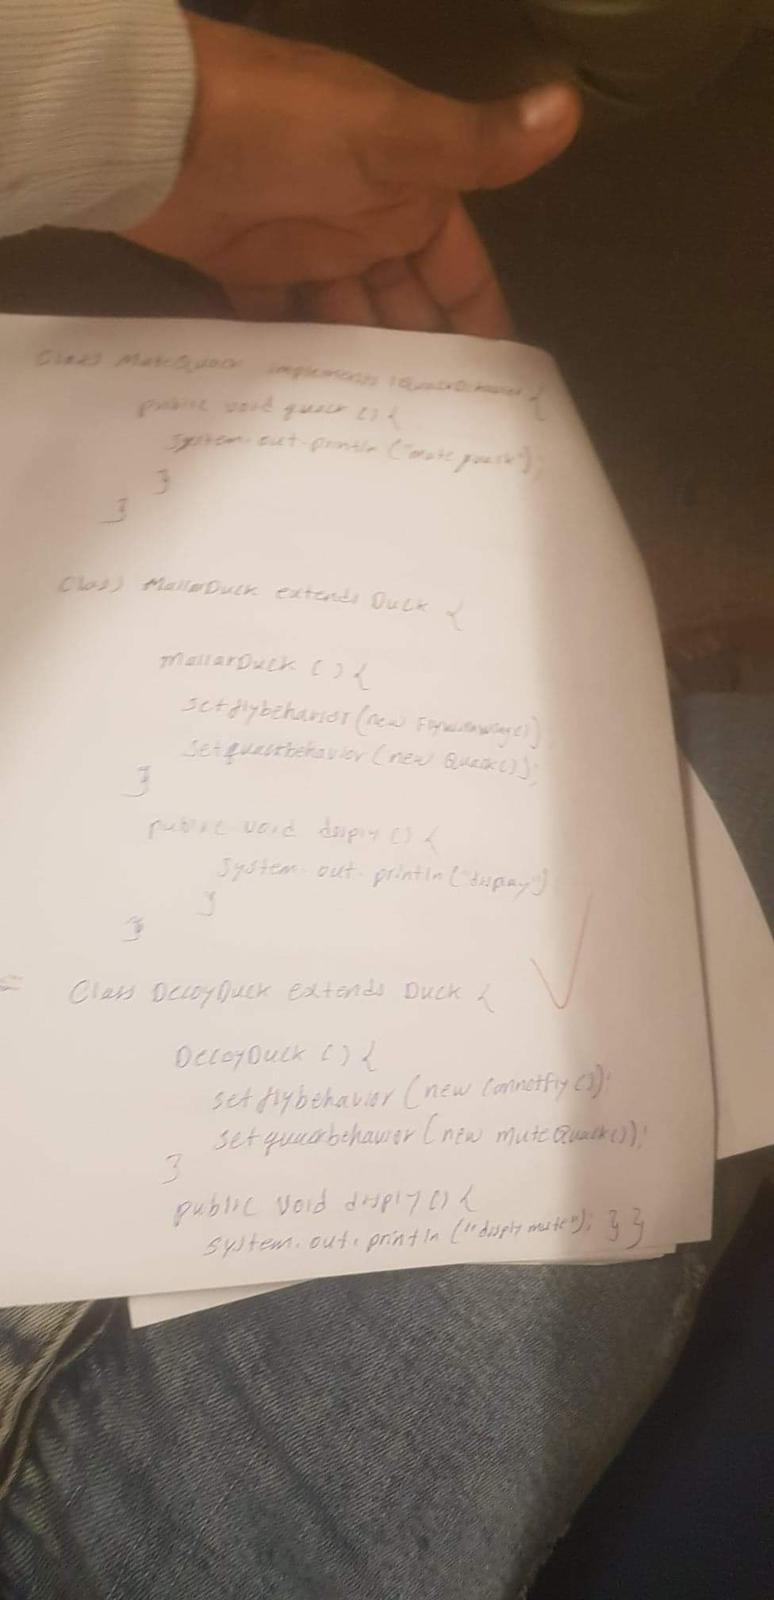 Class MuteQuack implements IQuackBehavior {
public void quack () {
system.out.println ("mute quack");
}
}
Class MallarDuck extends Duck {
MallarDuck () {
setflybehavior (new Flywithwings())
setquackbehavior (new Quack());
}
public void disply () {
system.out.println ("display")
}
}
= Class DecoyDuck extends Duck {
DecoyDuck () {
setflybehavior (new Cannotfly());
setquackbehavior (new muteQuack());
}
public void disply () {
system.out.println ("disply mute"); } }